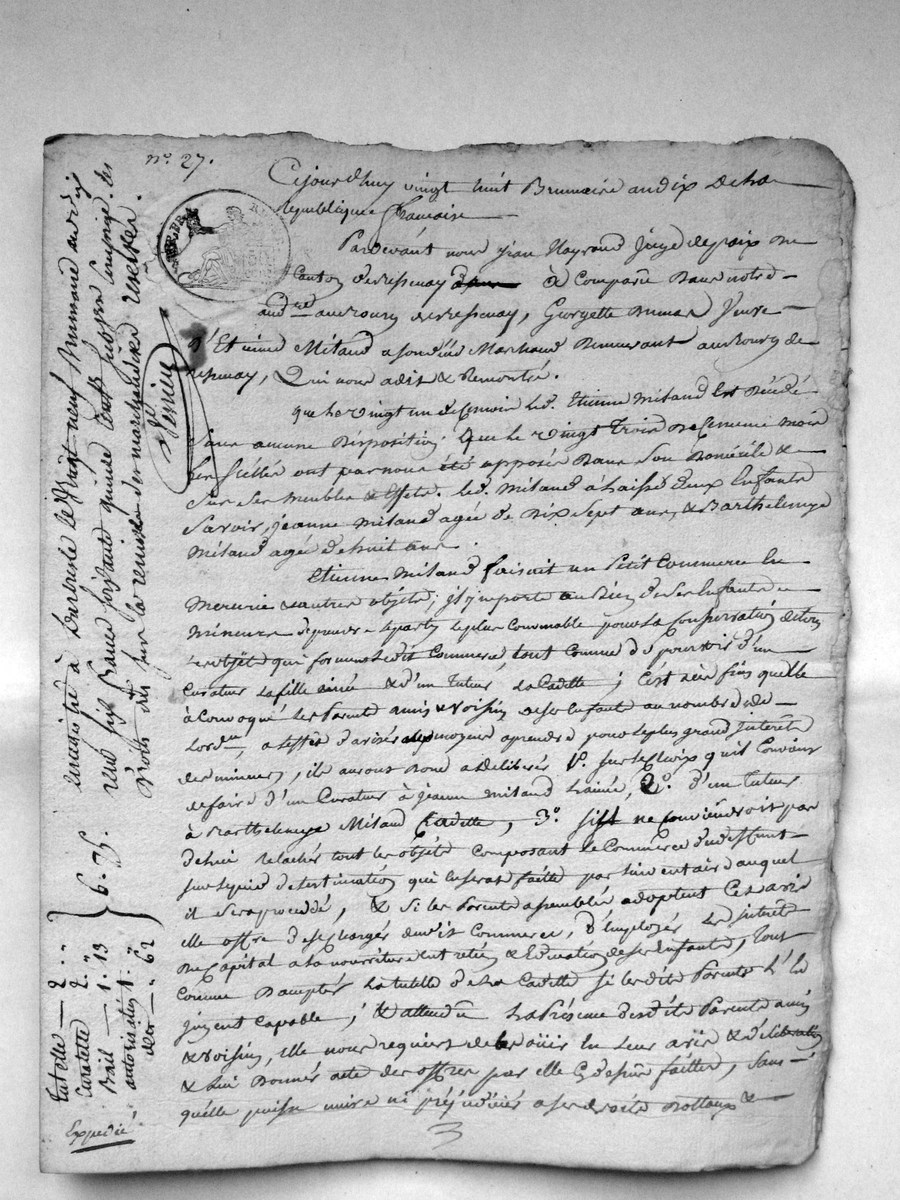 n.o 27.
Cejourd'huy vingt huit Brumaire an dix de la
République francaise
Pardevant nous jean Nayraud Juge de paix du
Canton de à Comparu dans notre
aud.ce au bourg de Georgette Dumas Veuve
d'Etienne Mitaud a son vivant Marchand Demeurant au Bourg de
Qui nous a dit & Remontré.
que le vingt un de ce mois led. Etienne Mitaud est Décédé
sans aucune Disposition; Que le vingt trois du meme mois
les scellés ont par nous été apposés dans son Domicile &
sur ses meubles & effets. led. Mitaud a laissé deux Enfants
Savoir, jeanne Mitaud agée de Dix Sept ans, & Barthelemye
Mitaud agée de huit ans.
Etienne Mitaud faisait un Petit Commerce en
Mercerie & autres objets; il importe au Bien de ses Enfants
Mineurs de prendre le party le plus Convenable pour la Conservation de tous
les objets qui forment ledit Commerce, tout comme de pourvoir d'un
Curateur la fille ainée & d'un Tuteur la Cadette; C'est à ces fins quelle
à Convoqué les Parents amis & Voisins de ses Enfants au nombre de
Lord.ce, a l'effet d'aviser moyens a prendre pour le plus grand Intérêt
des mineurs, ils auront Donc a délibérer 1.o sur le Choix qu'il Convient
de faire d'un Curateur à Jeanne Mitaud L'ainée, 2.o d'un Tuteur
à Barthelemye Mitaud Cadette, 3.o s'il ne Conviendroit pas
de lui relacher tout les objets Composant le Commerce du deffunt
sur le pied de l'estimation qui en sera faitte par l'inventaire auquel
il sera procédé, & si les Parents assemblés adoptent Cet avis
elle offre de se Charger dudit Commerce, d'Employer les intérêts
du Capital a la nourriture Entretien & Education de ses Enfants, tout
Comme D'accepter la tutelle de la Cadette si lesdits Parents l'en
jugent Capable; & attendu la Présence desdits Parents amis
& Voisins, elle nous requiert de les ouïr en leur avis & délibération
& lui Donner acte des offres par elle Cy dessus faittes, sans
quelle puisse nuire ni préjudicier a ses droits Dottaux &
3
enregistré à le Vingt neuf brumaire an dix
reçu six francs soixante quinze cents les
Droits sur la remise des marchandises reservés.
Tutelle — 2 . "
Curatelle 2 . "
Bail — 1 . 13
autorisation 1 . "
der — " . 62
} 6. 75
Expedié